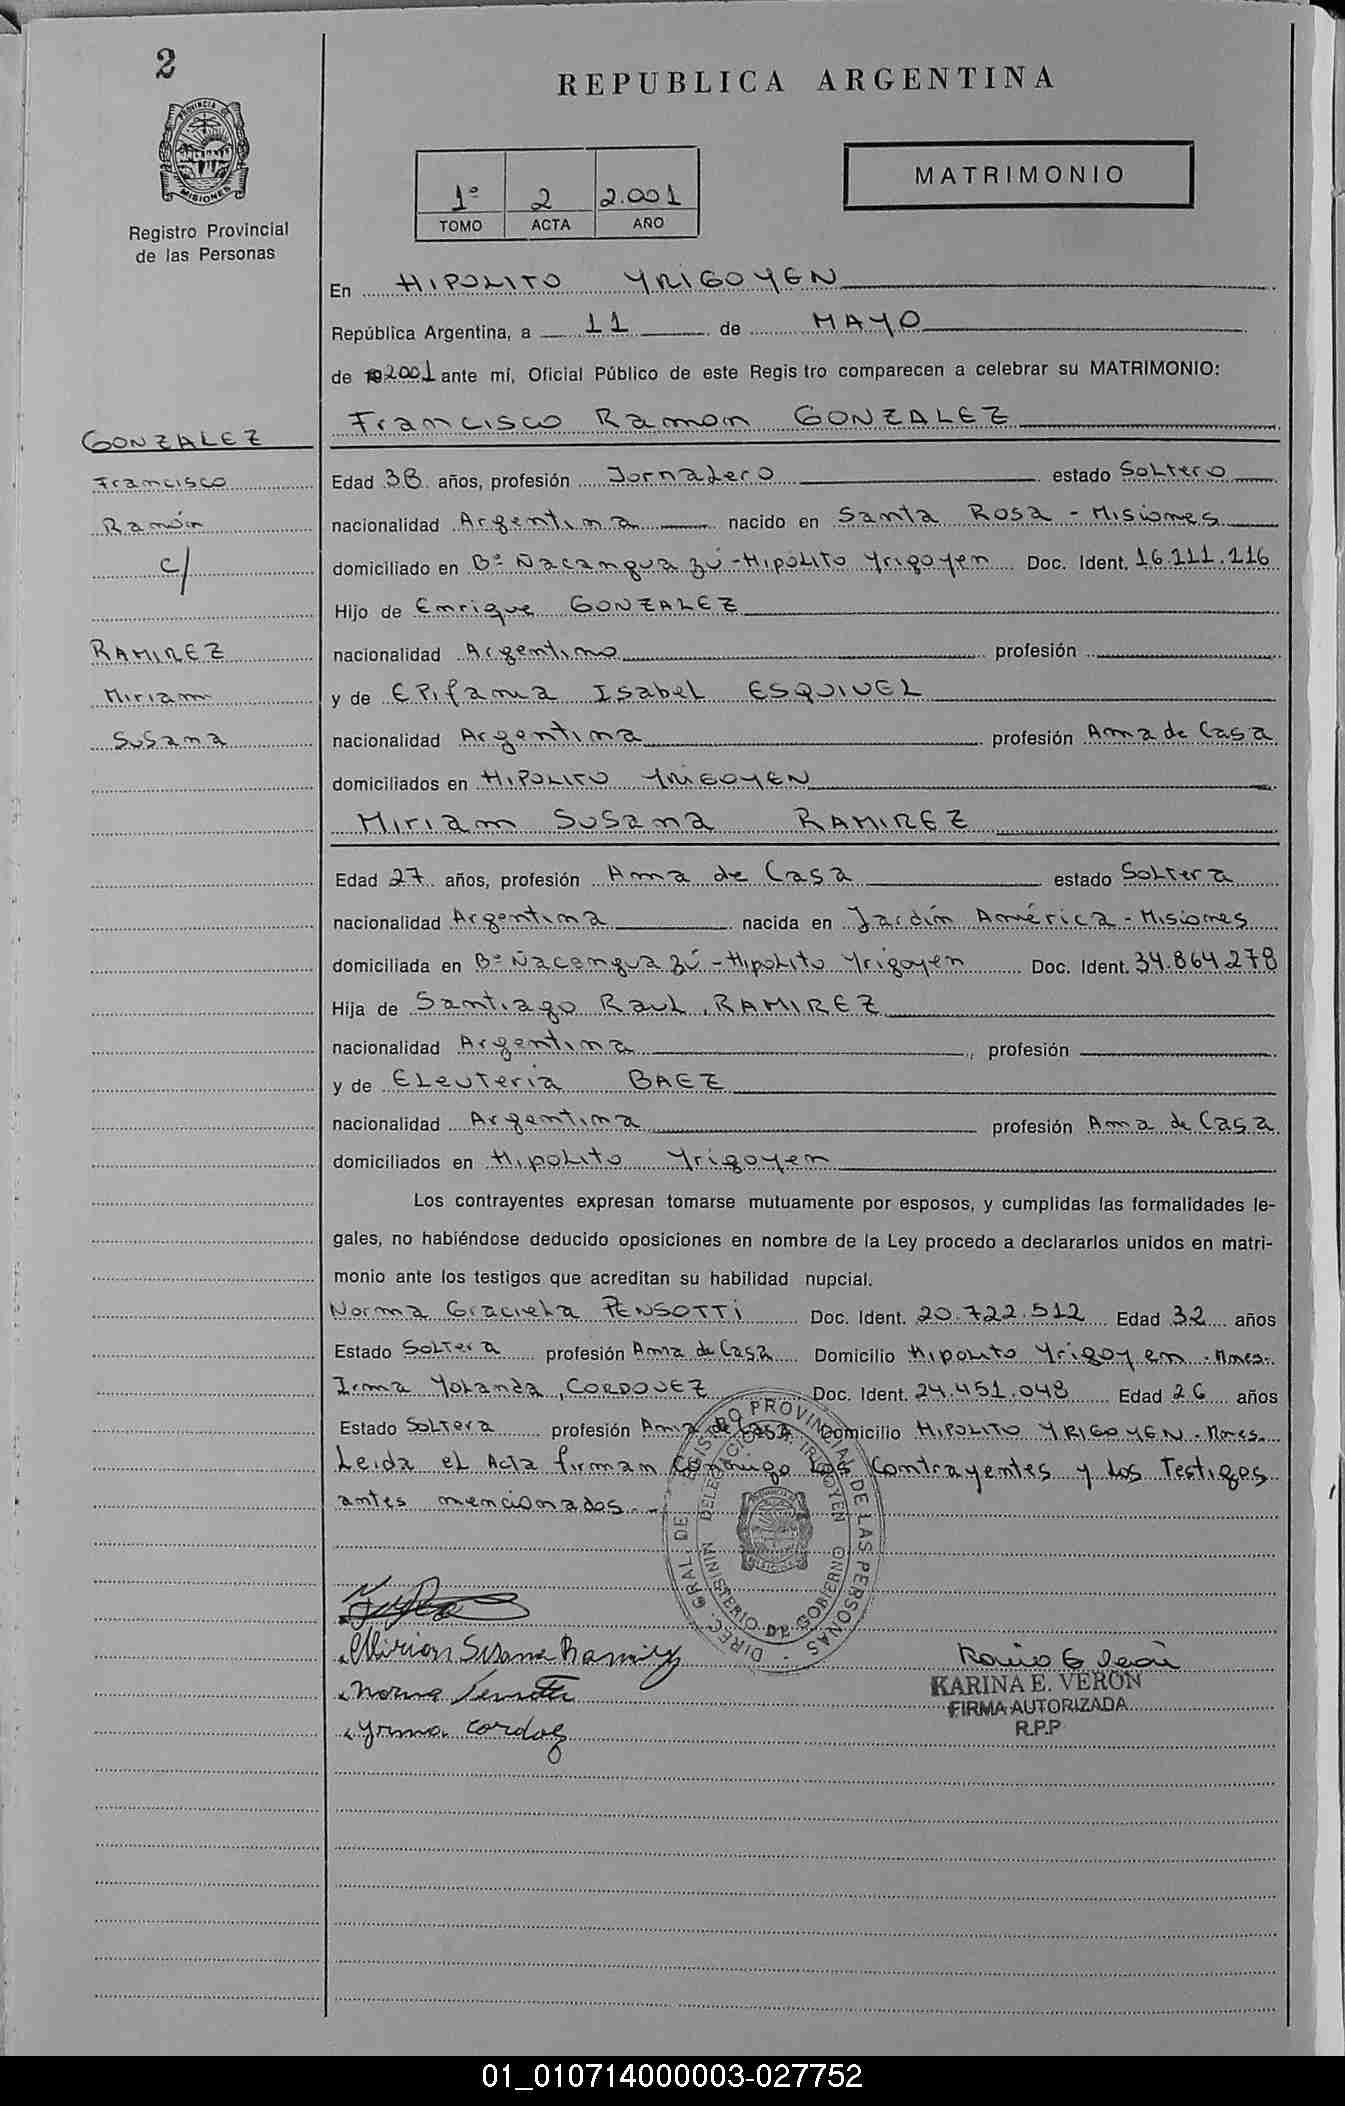 2
PROVINCIA DE
MISIONES
Registro Provincial
de las Personas
REPUBLICA ARGENTINA
1º 2 2.001
TOMO ACTA AÑO
MATRIMONIO
En HIPOLITO YRIGOYEN
República Argentina, a 11 de MAYO
de 2001 ante mí, Oficial Público de este Registro comparecen a celebrar su MATRIMONIO:
Francisco Ramon GONZALEZ
GONZALEZ
Francisco
Ramón
c/
RAMIREZ
Miriam
Susana
Edad 38 años, profesión Jornalero estado Soltero
nacionalidad Argentina nacido en Santa Rosa - Misiones
domiciliado en Bº Ñacanguazú - Hipólito Yrigoyen Doc. Ident. 16.111.116
Hijo de Enrique GONZALEZ
nacionalidad Argentino profesión
y de EPifania Isabel ESQUIVEL
nacionalidad Argentina profesión Ama de Casa
domiciliados en HIPOLITO YRIGOYEN
Miriam Susana RAMIREZ
Edad 27 años, profesión Ama de Casa estado Soltera
nacionalidad Argentina nacida en Jardín América - Misiones
domiciliada en Bº Ñacanguazú - Hipolito Yrigoyen Doc. Ident. 34.864.278
Hija de Santiago Raul RAMIREZ
nacionalidad Argentina profesión
y de Eleuteria BAEZ
nacionalidad Argentina profesión Ama de Casa
domiciliados en Hipolito Yrigoyen
Los contrayentes expresan tomarse mutuamente por esposos, y cumplidas las formalidades le-
gales, no habiéndose deducido oposiciones en nombre de la Ley procedo a declararlos unidos en matri-
monio ante los testigos que acreditan su habilidad nupcial.
Norma Graciela PENSOTTI Doc. Ident. 20.722.512 Edad 32 años
Estado Soltera profesión Ama de Casa Domicilio Hipolito Yrigoyen - Mnes.
Irma Yolanda CORDOVEZ Doc. Ident. 24.451.048 Edad 26 años
Estado Soltera profesión Ama de Casa Domicilio HIPOLITO YRIGOYEN - Mnes.
Leida el Acta firman conmigo los Contrayentes y los Testigos
antes mencionados.
DIREC. GRAL. DE REGISTRO PROVINCIAL DE LAS PERSONAS
DELEGACION H. IRIGOYEN
MINISTERIO DE GOBIERNO
Mirian Susana Ramirez
Norma
Yrma Cordoz
KARINA E. VERON
FIRMA AUTORIZADA
R.P.P
01_010714000003-027752